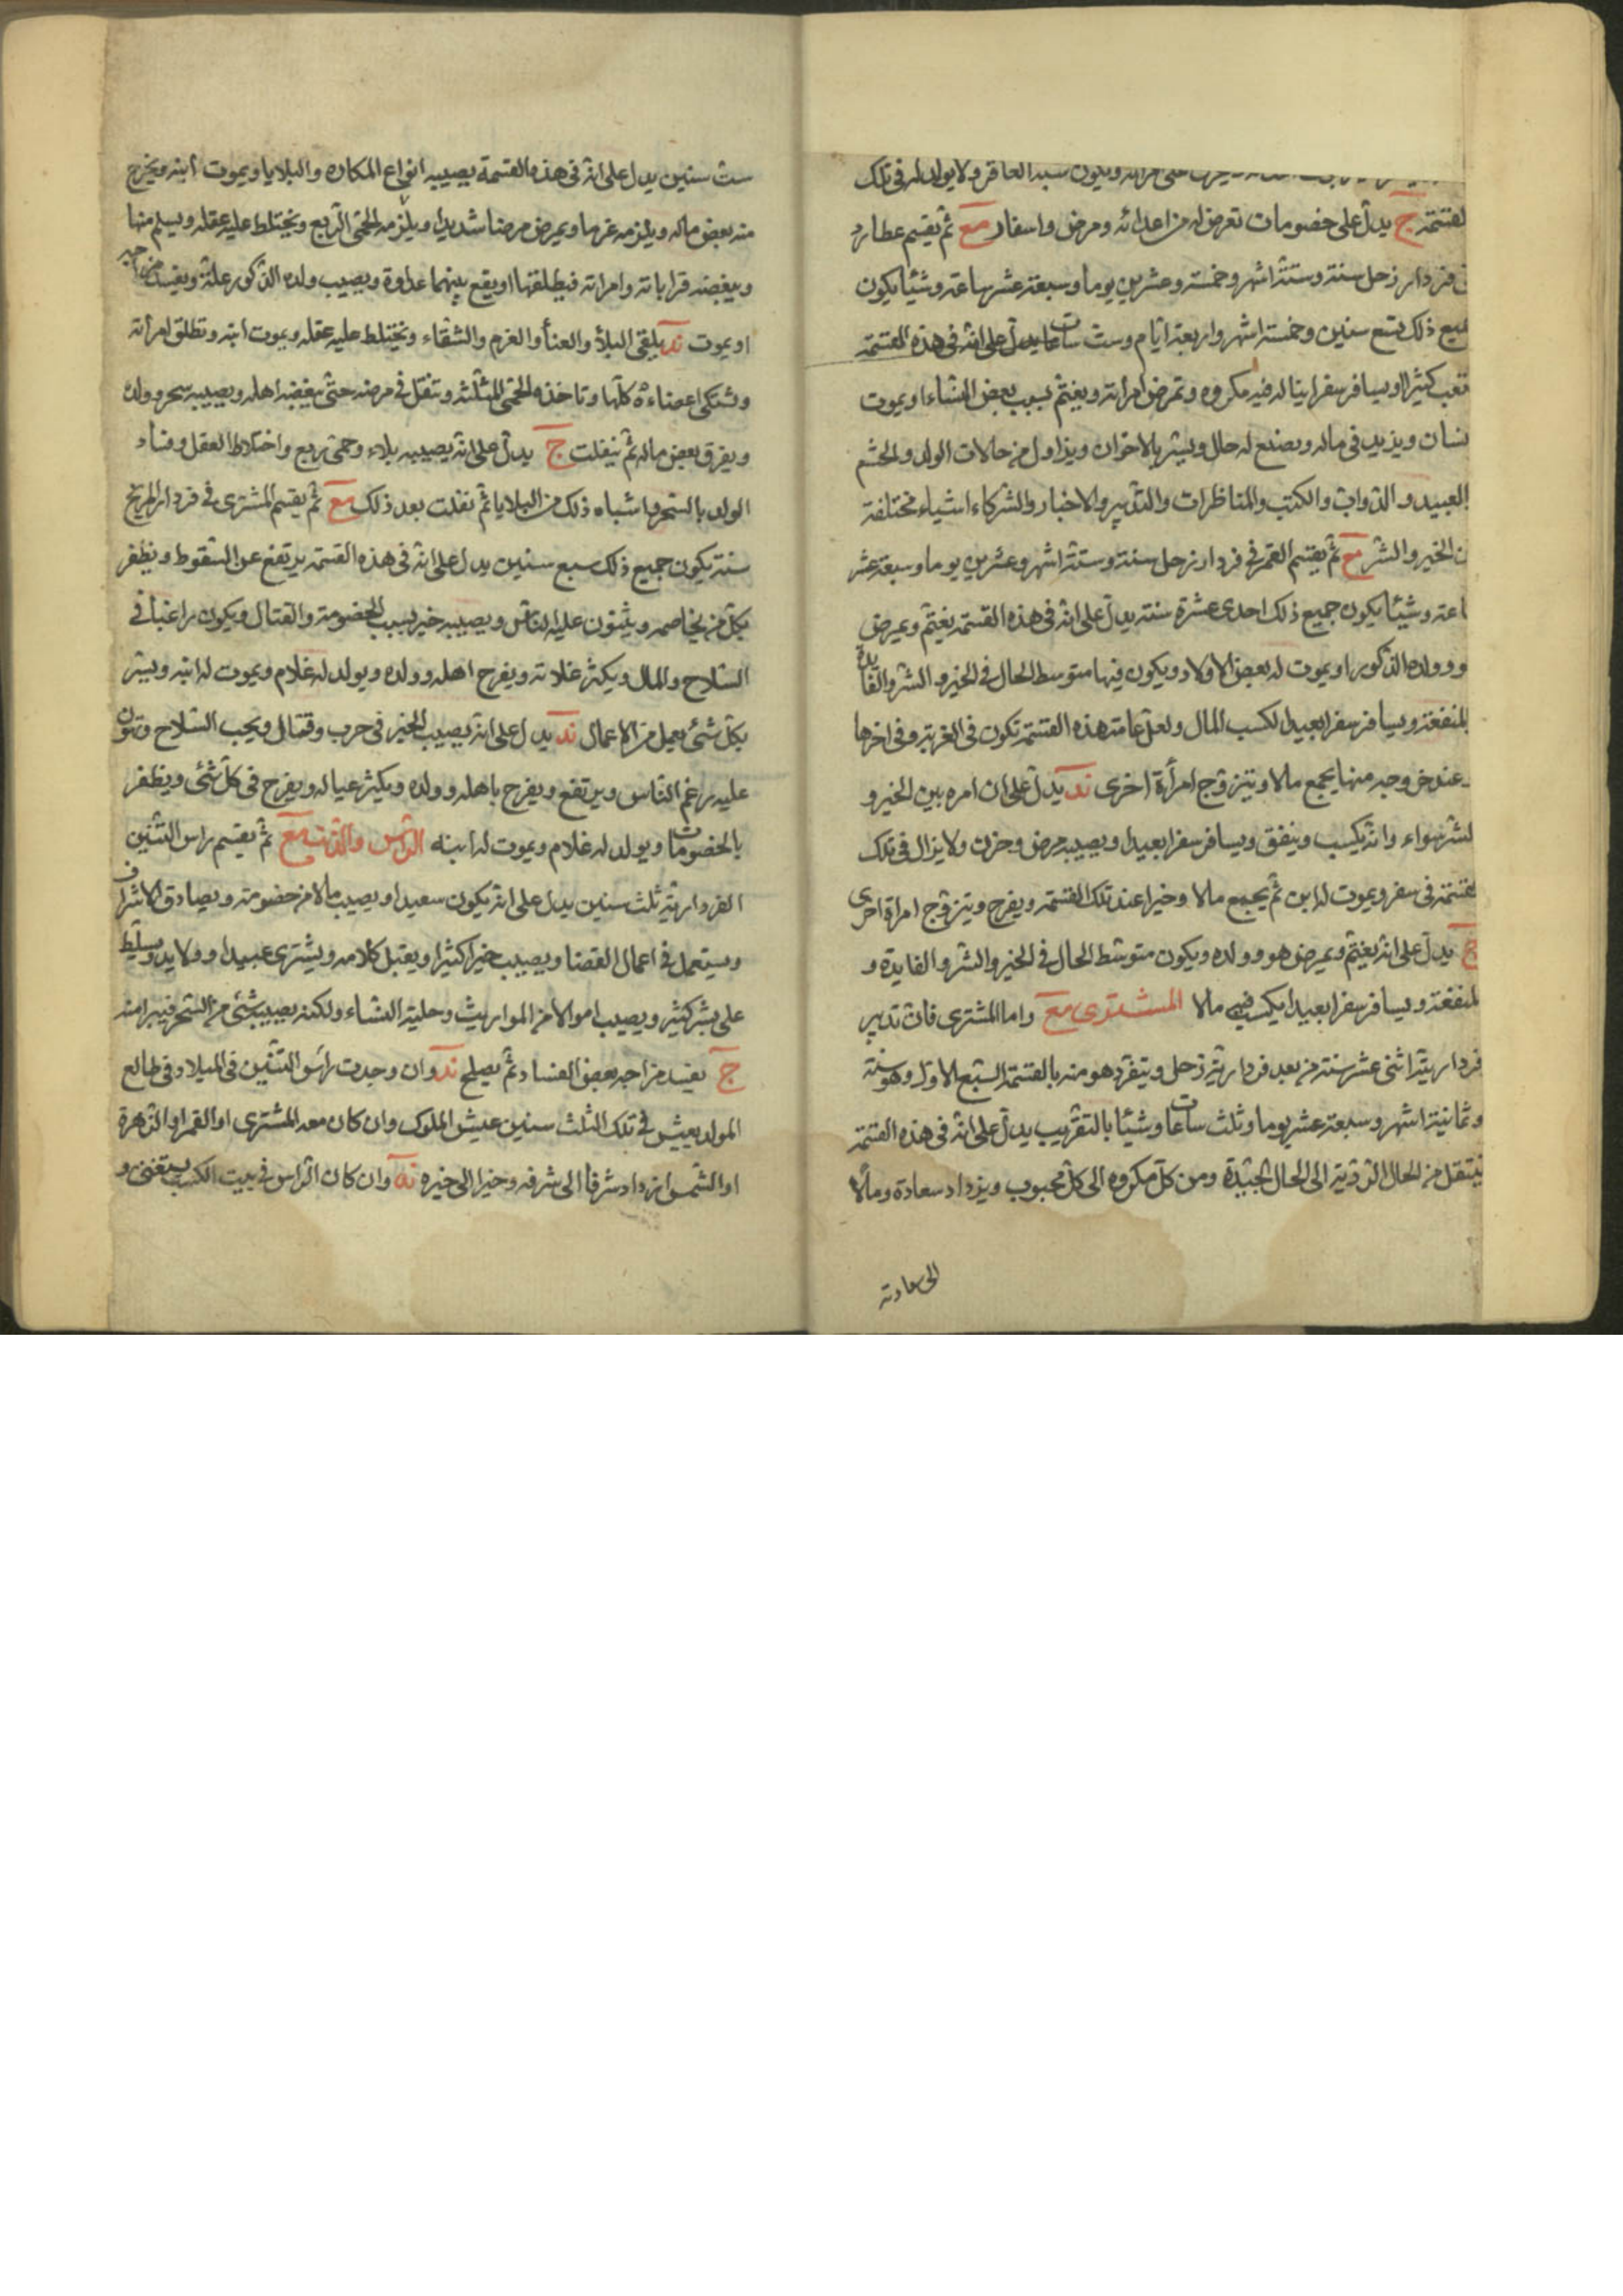 ويكون سبه العاقر ولا يولد له في تلك
القسمة ج يدل على خصومات تعرض له من اعدائه ومرض واسفار مع ثم يقسم عطارد
فردار زحل سنة وستة اشهر وخمسة وعشرين يوما وسبعة عشر ساعة وشيئا يكون
جميع ذلك تسع سنين وخمسة اشهر واربعة ايام وست ساعات يدل على انه في هذه القسمة
تعب كثيرا ويسافر سفرا يناله فيه مكروه وتمرض امرأته ويغتم بسبب بعض النساء او يموت
انسان ويزيد في ماله ويصنع له حال ويبشر بالاخوان ويزاول من حالات الولد والحشم
والعبيد والدواب والكتب والمناظرات والتدبير والاخبار والشركاء اشياء مختلفة
من الخير والشر مع ثم يقسم القمر في فردار زحل سنة وستة اشهر وعشرين يوما وسبعة عشر
ساعة وشيئا يكون جميع ذلك احدى عشرة سنة يدل على انه في هذه القسمة يغتم ويمرض
هو وولده الذكور او يموت له بعض الاولاد ويكون فيها متوسط الحال في الخير والشر والفايدة
والمنفعة ويسافر سفرا بعيدا لكسب المال ولعل عامة هذه القسمة تكون في الغربة وفي اخرها
وعند خروجه منها يجمع مالا ويتزوج امرأة اخرى ند يدل على ان امره بين الخير و
الشر سواء وانه يكسب وينفق ويسافر سفرا بعيدا ويصيبه مرض وحزن ولا يزال في تلك
القسمة في سفر ويموت له ابن ثم يجمع مالا وخيرا عند تلك القسمة ويفرح ويتزوج امرأة اخرى
ج يدل على انه يغتم ويمرض هو وولده ويكون متوسط الحال في الخير والشر والفايدة و
المنفعة ويسافر سفرا بعيدا يكسب فيه مالا المشترى مع واما المشترى فان تدبير
فرداريته اثنى عشر سنة من بعد فردارية زحل ويتفرد هو منه بالقسمة السبع الاول وهو سنة
وثمانية اشهر وسبعة عشر يوما وثلث ساعات وشيئا بالتقريب يدل على انه في هذه القسمة
ينتقل من الحال الردية الى الحال الجيدة ومن كل مكروه الى كل محبوب ويزداد سعادة ومالا
الى سعادته
ست سنين يدل على انه في هذه القسمة يصيبه انواع المكاره والبلايا ويموت ابنه ويخرج
منه بعض ماله ويلزمه غرما ويمرض مرضا شديدا ويلزمه الحمى الربع ويختلط عليه عقله ويسلم منها
ويبغضه قراباته وامراته فيطلقها او يقع بينهما عداوة ويصيب ولده الذكور علة ويفسد مزاجه
او يموت ند يلقى البلأ والعنأ والغرم والشقاء ويختلط عليه عقله ويموت ابنه وتطلق امرأته
وتشتكى اعضاءه كلها وتاخذه الحمى المثلثة وتثقل في مرضه حتى يبغضه اهله ويصيبه سحر وولده
ويفرق بعض ماله ثم ينفلت ج يدل على انه يصيبه بلاء وحمى ربع واختلاط العقل وفساد
الولد بالسحر واشباه ذلك من البلايا ثم تفلت بعد ذلك مع ثم يقسم المشترى في فردار المريخ
سنة يكون جميع ذلك سبع سنين يدل على انه في هذه القسمة يرتفع عن السقوط ويظفر
بكل من يخاصمه ويثنون عليه الناس ويصيبه خير بسبب الخصومة والقتال ويكون راغبا في
السلاح والمال ويكثر غلاته ويفرح اهله وولده ويولد له غلام ويموت له ابنه ويبشر
بكل شئ يعمل من الاعمال ند يدل على انه يصيب الخير في حرب وقتال ويحب السلاح ويثنون
عليه برغم الناس ويرتفع ويفرح باهله وولده ويكثر عياله ويفرح في كل شئ ويظفر
بالخصومات ويولد له غلام ويموت له ابنه الراس والذنب مع ثم يقسم راس التنين
الفردارية ثلث سنين يدل على انه يكون سعيدا ويصيب مالا من خصومة ويصادق الاشراف
ويستعمل في اعمال القضا ويصيب خيرا كثيرا ويقبل كلامه ويشترى عبيدا وولايد ويسلط
على بشر كثير ويصيب اموالا من المواريث وحلية النساء ولكنه يصيبه شئ من السحر فيبرا منه
ج يفسد مزاجه بعض الفساد ثم يصلح ند وان وجدت رأس التنين في الميلاد في طالع
المولد يعيش في تلك الثلث سنين عيش الملوك وان كان معه المشترى او القمر او الزهرة
او الشمس ازداد شرفا الى شرفه وخيرا الى خيره نه وان كان الراس في بيت الكسب يستغنى و